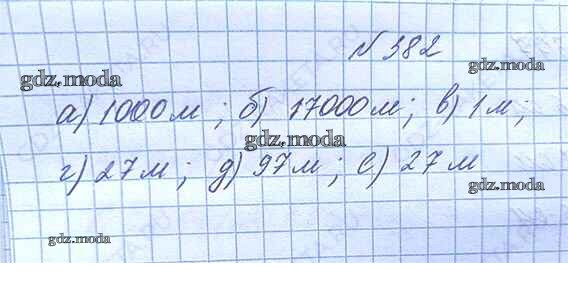 N 382
gdz.moda
gdz.moda
а) 1000 м ; б) 17000 м ; в) 1 м ;
gdz.moda
г) 27 м ; д) 97 м ; е) 27 м
gdz.moda
gdz.moda